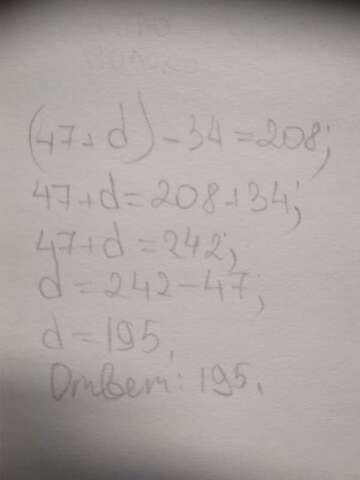 (47+d)-34=208;
47+d=208+34;
47+d=242;
d=242-47;
d=195.
Ответ: 195.